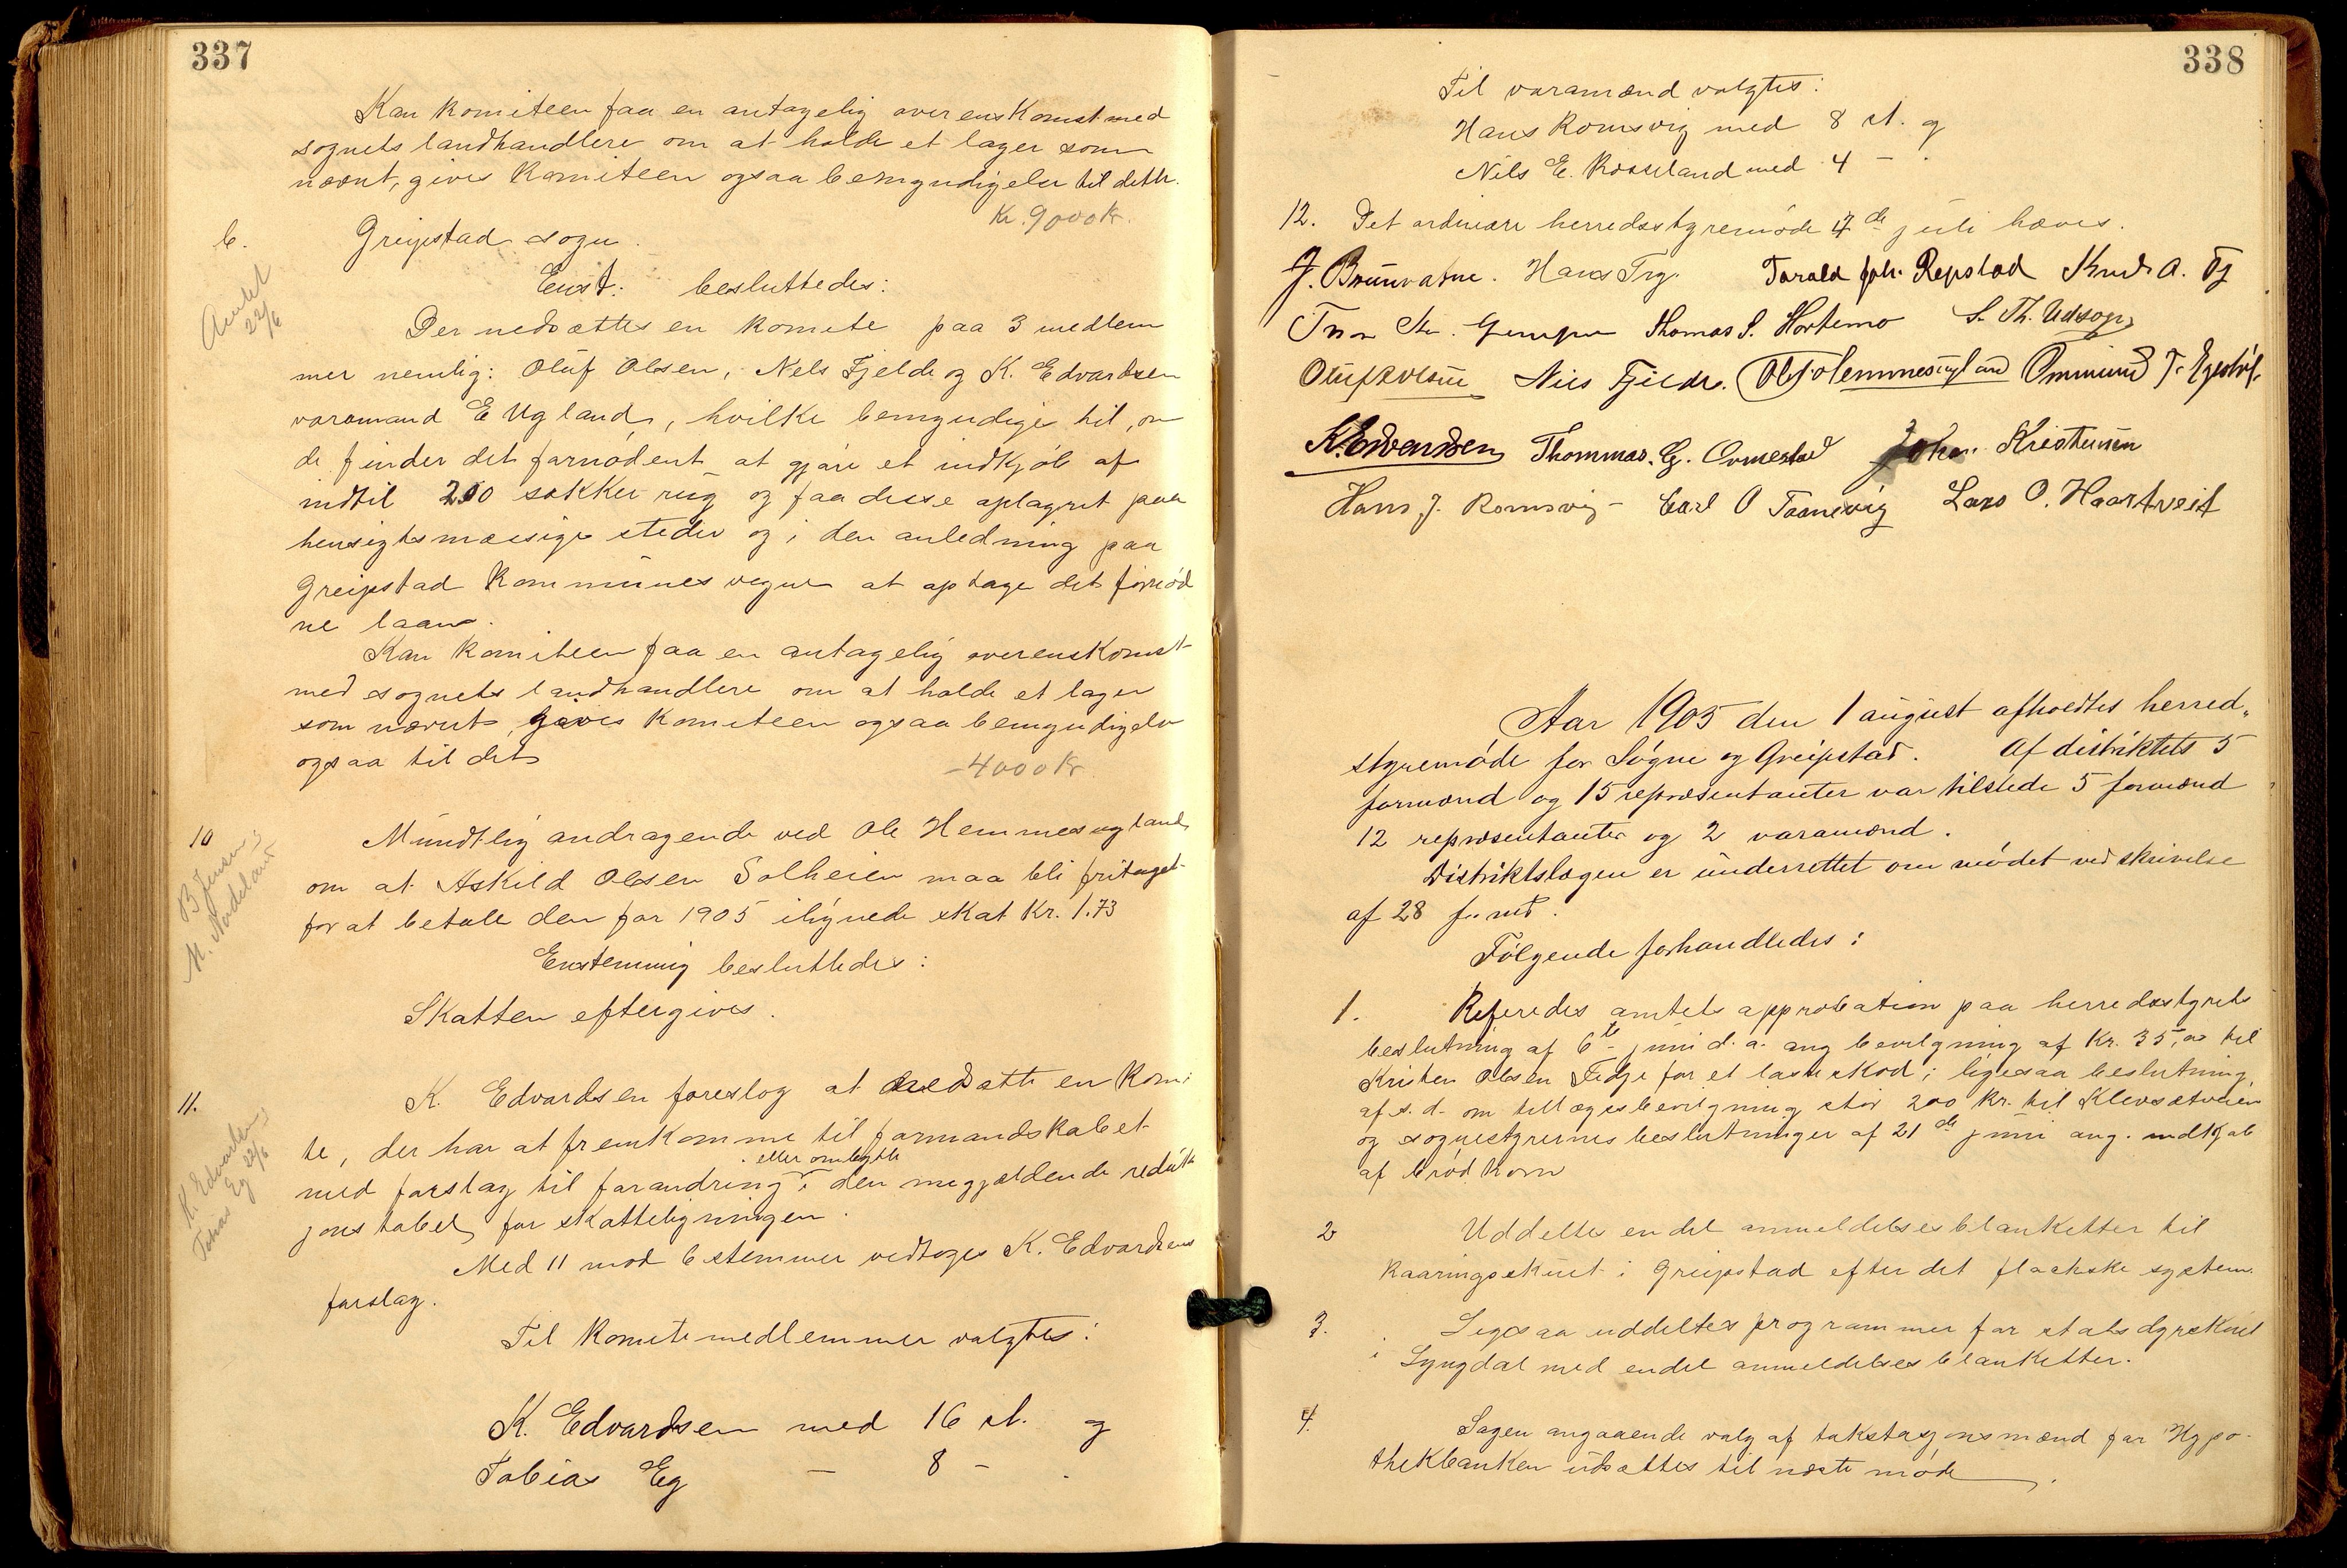 337
Kan komiteen faa en antagelig overenskomst med
sognets landhandlere om at holde et lager som
nævnt, gives komiteen ogsaa bemyndigelse til dette.
Kr. 9000 kr.
b. Greipstad sogn.
Amtet
22/6
Enst. besluttedes:
Der nedsættes en komite paa 3 medlem
mer nemlig: Oluf Olsen, Nels Fjelde og K. Edvardsen
varamand E Ugland, hvilke bemyndiges til, om
de finder det fornødent at gjøre et indkjøb af
indtil 200 sækker rug og faa disse oplagret paa
hensigtsmæssige steder og i den anledning paa
Greipstad kommunes vegne at optage det fornød
ne laan.
Kan komiteen faa en antagelig overenskomst
med sognets landhandlere om at holde et lager
som nævnt, gives komiteen ogsaa bemyndigelse
ogsaa til det
- 4000 kr.
10 Mundtlig andragende ved Ole Hemmesugland
B Jensen
M. Aadeland
om at Askild Olsen Solheien maa bli fritaget
for at betale den for 1905 ilignede skat Kr. 1.73
Enstemmig besluttedes:
Skatten eftergives.
11. K. Edvardsen foreslog at nedsætte en komi
K. Edvardsen
22/6
Tobias Eg
te, der har at fremkomme til formandskabet
med forslag til forandring i den nugjældende reduk
eller omlagte
jons tabel for skatteligningen.
Med 11 mod 6 stemmer vedtoges K. Edvardsens
forslag.
Til komitemedlemmer valgtes:
K. Edvardsen med 16 st. og
Tobias Eg - 8 - .
338
Til varamænd valgtes:
Hans Romsvig med 8 st. og
Nils E. Rosseland med 4 - .
12. Det ordinære herredsstyremøde 4de juli hæves.
J. Brunvatne. Hans Try. Tarald Joh. Repstad Knud A. Tj
Thomas S. Hortemo S. Th. Udsogn
Oluf Olsen Niels Fjelde. Ole T Hemmesugland Ommund T.
K. Edvardsen Thommas. G. Ormestad Johan Kristensen
Hans J. Romsvig - Carl O Taanevig Lars O. Haartveit
Aar 1905 den 1 august afholdtes herred„
styremøde for Søgne og Greipstad. Af distriktets 5
formænd og 15 repræsentanter var tilstede 5 formænd
12 repræsentanter og 2 varamænd.
Distriktslægen er underrettet om mødet ved skrivelse
af 28 f. md.
Følgende forhandledes:
1. Referedes amtets approbation paa herredsstyrets
beslutning af 6te juni d. a. ang bevilgning af Kr. 35,00 til
Kristen Olsen Fidje for et lasteskod; ligesaa beslutning
af s. d. om tillægsbevilgning stor 200 kr. til Klevsætveien
og sognestyrernes beslutninger af 21de juni ang. indkjøb
af brødkorn
2 Uddeltes endel anmeldelsesblanketter til
kaaringsskuet i Greipstad efter det flackske system.
3. Ligesaa uddeltes programmer for statsdyrskuet
i Lyngdal med endel anmeldelsesblanketter.
4. Sagen angaaende valg af takstasjonsmænd for Hypo-
thekbanken udsættes til næste møde.